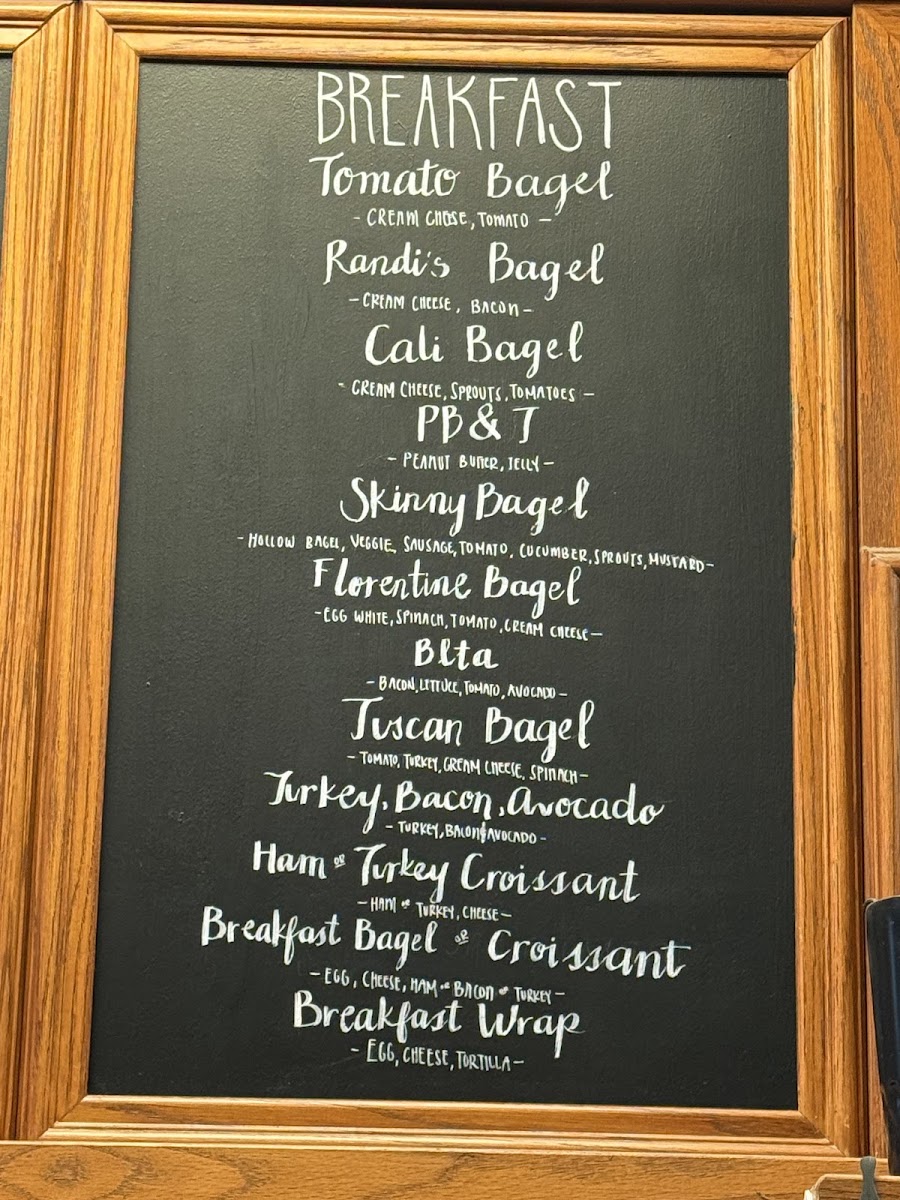 BREAKFAST
Tomato Bagel
- CREAM CHEESE, TOMATO -
Randi's Bagel
- CREAM CHEESE, BACON -
Cali Bagel
- CREAM CHEESE, SPROUTS, TOMATOES -
PB & J
- PEANUT BUTTER, JELLY -
Skinny Bagel
- HOLLOW BAGEL, VEGGIE SAUSAGE, TOMATO, CUCUMBER, SPROUTS, MUSTARD -
Florentine Bagel
- EGG WHITE, SPINACH, TOMATO, CREAM CHEESE -
Blta
- BACON, LETTUCE, TOMATO, AVOCADO -
Tuscan Bagel
- TOMATO, TURKEY, CREAM CHEESE, SPINACH -
Turkey, Bacon, Avocado
- TURKEY, BACON & AVOCADO -
Ham or Turkey Croissant
- HAM or TURKEY, CHEESE -
Breakfast Bagel or Croissant
- EGG, CHEESE, HAM or BACON or TURKEY -
Breakfast Wrap
- EGG, CHEESE, TORTILLA -